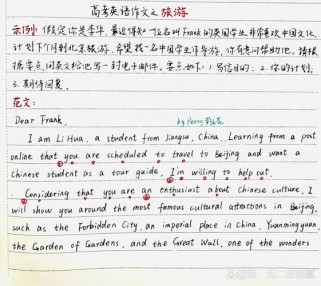 高考英语作文之旅游
示例:假定你是李华,最近得知一位名叫Frank的英国学生非常喜欢中国文化,
计划下个月到北京旅游,希望找一名中国学生作导游,你有意向帮助他,请根
据要点,用英文给他写一封电子邮件,要点如下:1.写信目的;2.你的计划;
3.期待回复.
范文:
Dear Frank,
by Penny
I am Li Hua, a student from Jiangsu, China. Learning from a post
online that you are scheduled to travel to Beijing and want a
Chinese student as a tour guide, I'm willing to help out.
Considering that you are an enthusiast about Chinese culture, I
will show you around the most famous cultural attractions in Beijing,
such as the Forbidden City, an imperial place in China, Yuanmingyuan,
the Garden of Gardens, and the Great Wall, one of the wonders